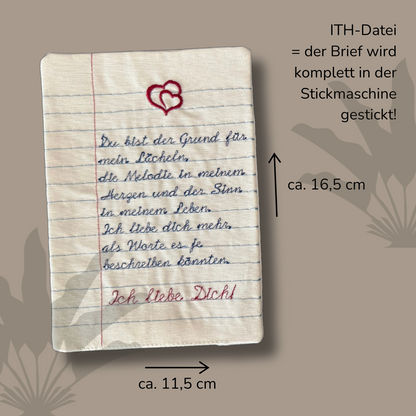 ITH-Datei
= der Brief wird
komplett in der
Stickmaschine
gestickt!
Du bist der Grund für
mein Lächeln,
die Melodie in meinem
Herzen und der Sinn
in meinem Leben.
Ich liebe dich mehr,
als Worte es je
beschreiben könnten.
Ich liebe Dich!
ca. 16,5 cm
ca. 11,5 cm